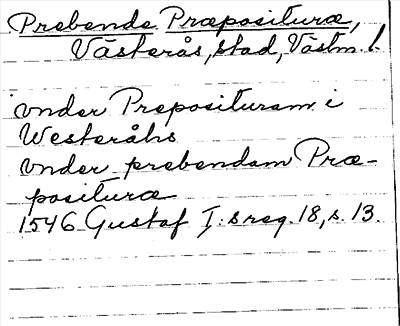 Prebende Præpositura,
Västerås, stad, Västm. l.
vnder Preposituram i
Westeråhs
vnder prebendam Præ-
positura
1546 Gustaf I:s reg. 18, s. 13.